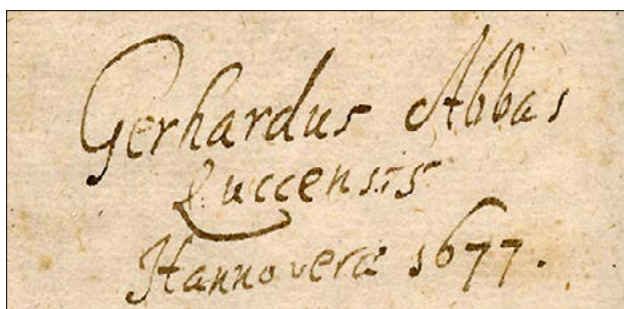 Gerhardus Abbas
Luccensis
Hannoveræ 1677.